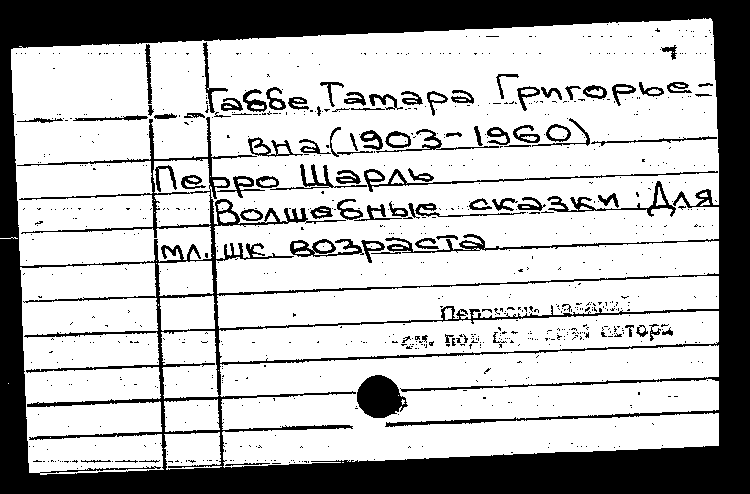 Габбе, Тамара Григорье=
вна (1903-1960).
Перро Шарль
Волшебные сказки : Для
мл. шк. возраста.
Перечень изданий
см. под фамилией автора